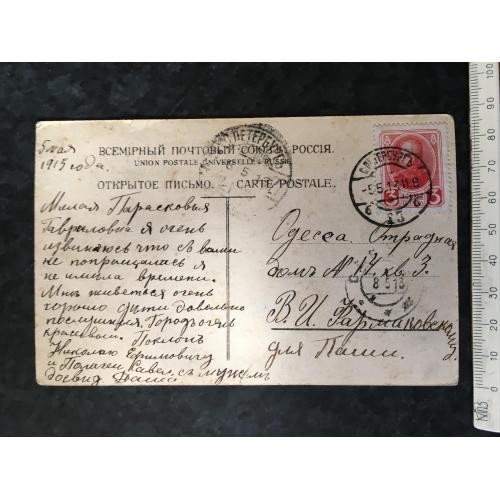 5 мая
1913 года.
ВСЕМІРНЫЙ ПОЧТОВЫЙ СОЮЗЪ. РОССІЯ.
UNION POSTALE UNIVERSELLE. RUSSIE.
ОТКРЫТОЕ ПИСЬМО. CARTE POSTALE.
Милая Парасковья
Гавриловна я очень
извиняюсь что с вами
не попращалась я
не имела времени.
Мне живеться очень
хорошо дети довольно
Городъ очень
красивый. Поклонъ
Николаю Ефимовичу
и съ мужемъ
Даша
Одесса. Отрадная
домъ № 14. кв. 3.
В. И. Фармаковской
для Паши.
С.ПЕТЕРБУРГЪ
5 5 13
8 5 13
3 3
100
90
80
70
60
50
40
30
20
10